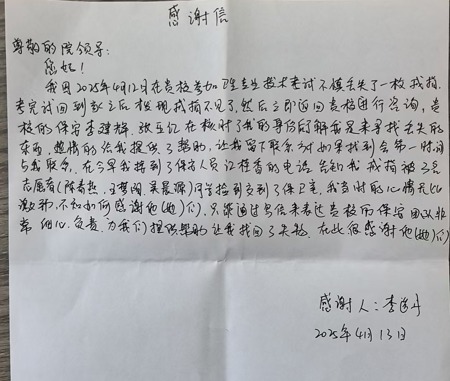 感谢信
尊敬的院领导:
您好!
我因2025年4月12日在贵校参加卫生专业技术考试不慎丢失了一枚戒指.
考完试回到家之后发现戒指不见了,然后立即返回贵校进行咨询,贵
校的保安李建辉、张玉江在核对了我的身份后了解我是来寻找丢失的
东西,热情的给我提供了帮助,让我留下联系方时如果找到会第一时间
与我联系,在今早我接到了保安人员江检查的电话告知我戒指被了三名
志愿者(陈春燕、王梦阁、吴景)同学捡到交到了保卫室,我当时取心情无比
激动,不知如何感谢他(她)们,只能通过写信来表达贵校的保安团队非
常细心、负责,为我们提供帮助,让我找回了失物,在此很感谢他(她)们
感谢人:李海丹
2025年4月13日